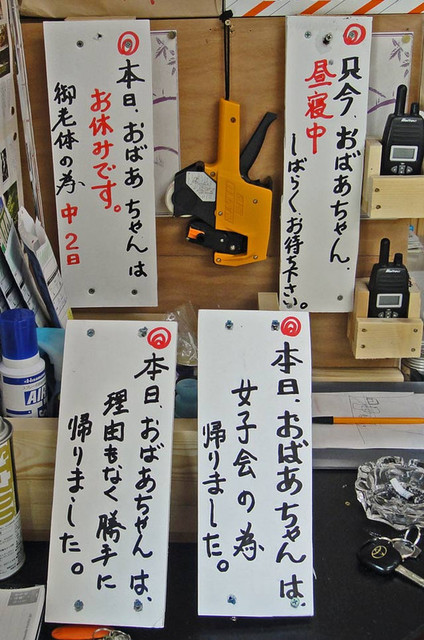 只今、おばあちゃん、
昼寝中
しばらくお待ち下さい。
本日、おばあちゃんは
お休みです。
御老体の為 中2日
本日、おばあちゃんは、
女子会の為
帰りました。
本日、おばあちゃんは、
理由もなく勝手に
帰りました。